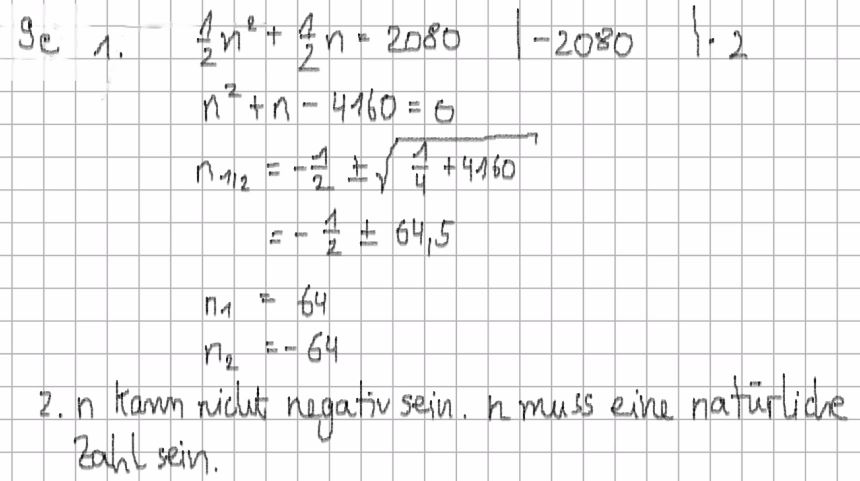 9e 1. 1/2 n² + 1/2 n = 2080 | -2080 | · 2
n² + n - 4160 = 0
n1/2 = - 1/2 ± √(1/4 + 4160)
= - 1/2 ± 64,5
n1 = 64
n2 = - 64
2. n kann nicht negativ sein. n muss eine natürliche
Zahl sein.